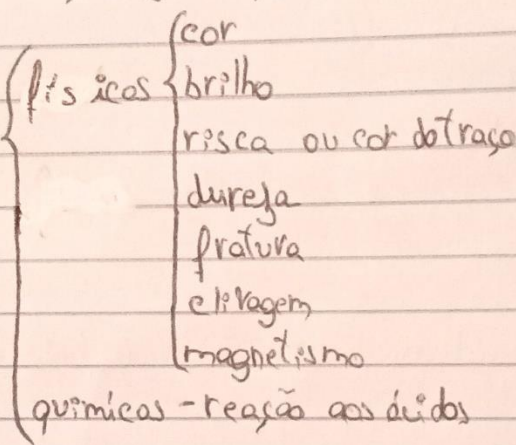 cor
físicas brilho
risca ou cor do traço
dureza
fratura
clivagem
magnetismo
químicas - reação aos ácidos